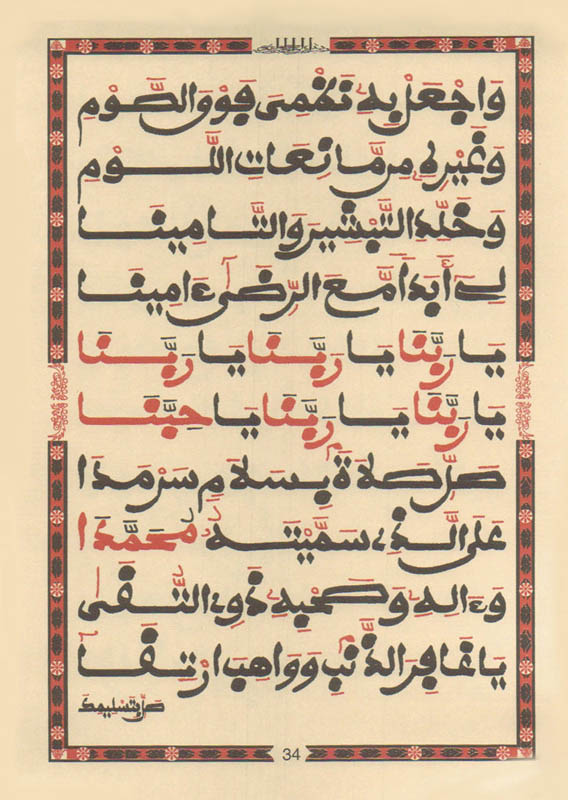 وَاجْعَلْ بِهِ نَفْعِى فَوْقَ الصَّوْمِ
وَغَيْرِهِ مِن مَّانِعَاتِ اللَّوْمِ
وَخَلِّدِ التَّبْشِيرَ وَالتَّامِينَا
لِى أَبَدًا مَّعَ الرِّضَى ءَامِينَا
يَا رَبَّنَا يَا رَبَّنَا يَا رَبَّنَا
يَا رَبَّنَا يَا رَبَّنَا يَا حِبَّنَا
صَلِّ صَلَاةً بِسَلَامٍ سَرْمَدَا
عَلَى الَّذِى سَمَّيْتَهُ مُحَمَّدَا
وَءَالِهِ وَصَحْبِهِ ذَوِى التُّقَى
يَا غَافِرَ الذَّنْبِ وَوَاهِبَ ارْتِقَا
صَلِّ بِتَسْلِيمِكَ
34